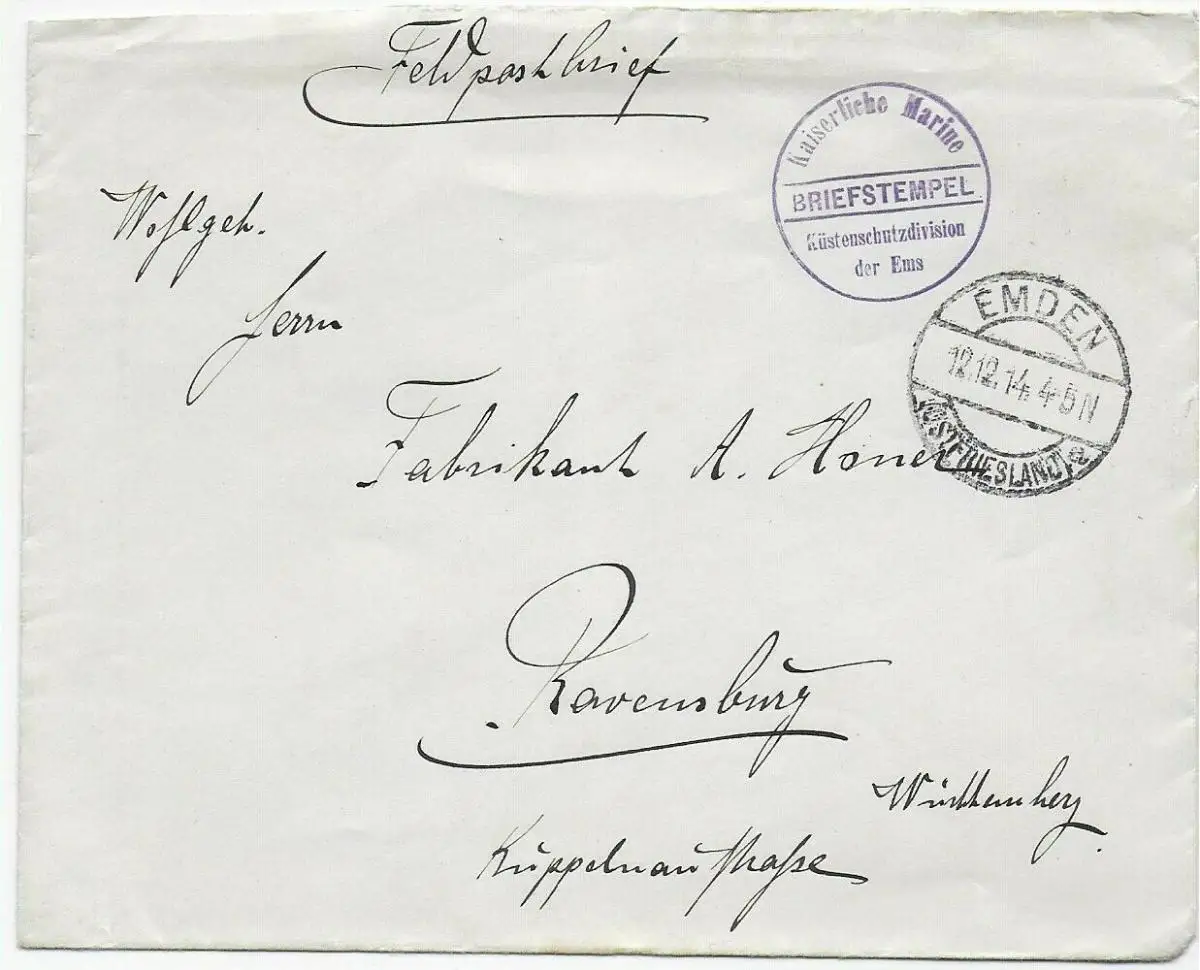 Feldpostbrief
Kaiserliche Marine
BRIEFSTEMPEL
Küstenschutzdivision
der Ems
Wohlgeb.
Herrn
EMDEN
12.12.14. 4-5N
(OSTFRIESLAND) a
Fabrikant A. Honer
Ravensburg
Württemberg
Kuppelnaustraße